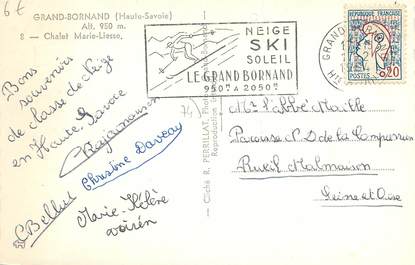 6€
GRAND-BORNAND (Haute-Savoie)
Alt. 950 m.
8 - Chalet Marie-Liesse,
NEIGE
SKI
SOLEIL
LE GRAND BORNAND
950M A 2050M
GRAND
REPUBLIQUE FRANÇAISE
POSTES
0,20
Bons
souvenirs
de classe de Neige
en Haute Savoie
Christine Daveau
C Bellut
Marie-Hélène
Cliché R. PERRILLAT Photo
Reproduction
74
Mr l'abbé Maille
Paroisse N.D de la Compassion
Rueil Malmaison
Seine et Oise